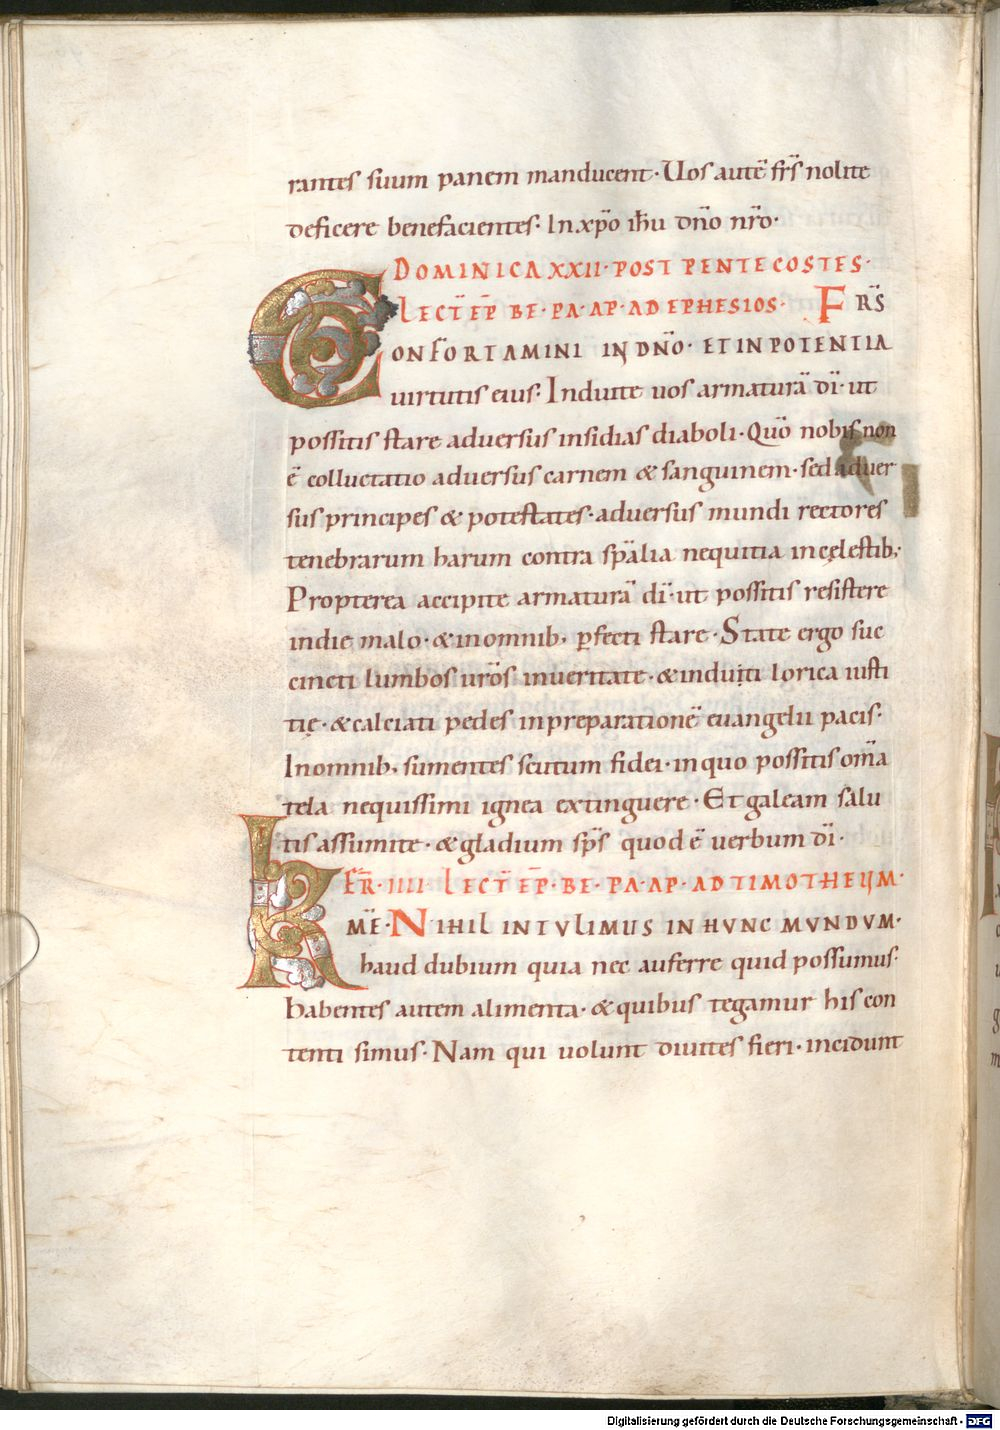 rantes suum panem manducent· Uos autē frs̄ nolite
deficere benefacientes· In xp̄o ih̄u dn̄o nr̄o·
DOMINICA XXII· POST PENTECOSTES·
LECT̄ EP̄ BE· PA· AP· AD EPHESIOS· FRS̄
CONFORTAMINI IN DN̄O· ET IN POTENTIA
uirtutis eius· Induite uos armaturā dī· ut
possitis stare aduersus insidias diaboli· Quō nobis non
ē colluctatio aduersus carnem & sanguinem· sed aduer
sus principes & potestates· aduersus mundi rectores
tenebrarum harum contra sp̄alia nequitia in cęlestib;·
Propterea accipite armaturā dī· ut possitis resistere
indie malo· & inomnib; ꝑfecti stare· State ergo suc
cincti lumbos urōs inueritate· & induiti lorica iusti
tię· & calciati pedes inpreparationē euangelii pacis·
Inomnib; sumentes scutum fidei· inquo possitis om̄a
tela nequissimi ignea extinguere· Et galeam salu
tis assumite· & gladium sps̄ quod ē uerbum dī·
FER̄· IIII· LECT̄ EP̄· BE· PA· AP· AD TIMOTHEUM·
KME̅· NIHIL INTULIMUS IN HUNC MUNDUM·
haud dubium quia nec auferre quid possumus·
habentes autem alimenta· & quibus tegamur his con
tenti simus· Nam qui uolunt diuites fieri· incidunt
Digitalisierung gefördert durch die Deutsche Forschungsgemeinschaft - DFG